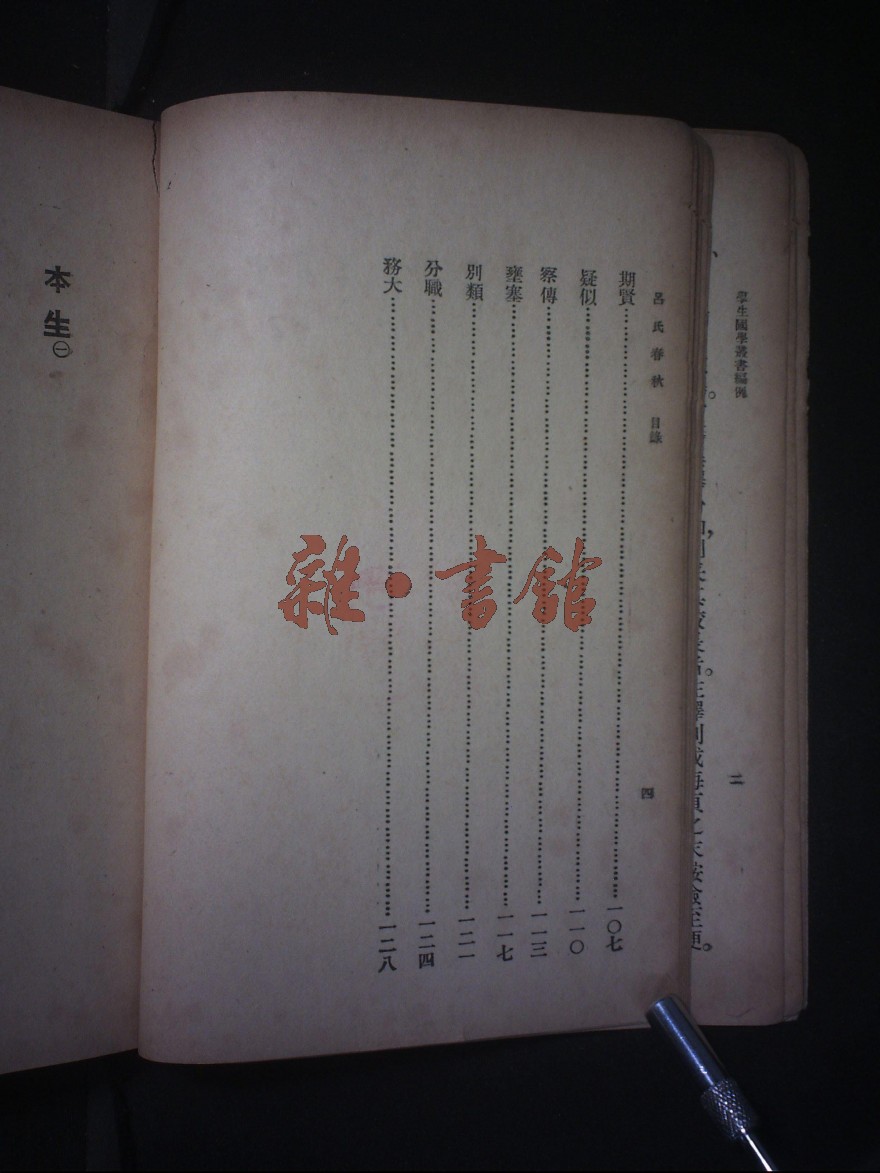 學生國學叢書編例
二
呂氏春秋 目錄
四
期賢……一〇七
疑似……一一〇
察傳……一一三
壅塞……一一七
別類……一二一
分職……一二四
務大……一二八
本生㊀
雜·書館